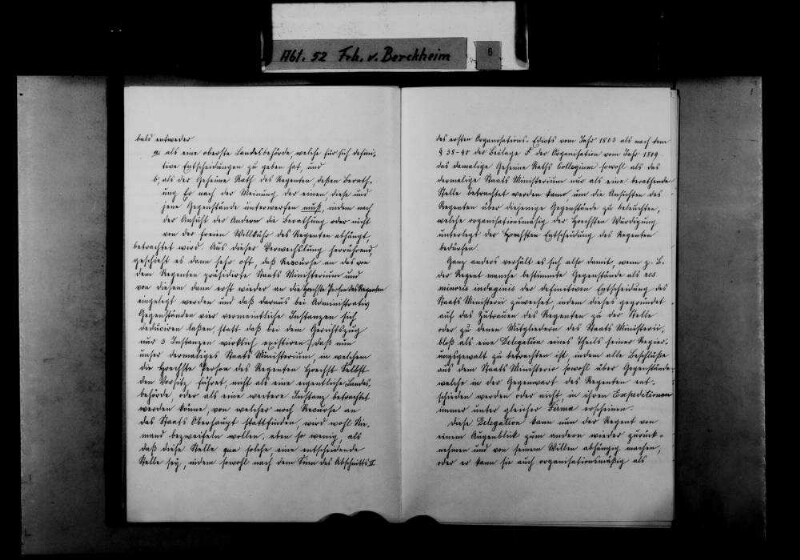 Abt. 52 Frh. v. Berckheim
6
bals entweder
a, als eine oberste Landesbehörde, welche für sich defini-
tive Entscheidungen zu geben hat, und
b, als der Geheime Rath des Regenten dessen Berath-
ung Er nach der Meinung der einen diese und
jene Gegenstände unterwerfen muß, indem nach
der Ansicht der Andern die Berathung oder nicht
von der freien Willkühr des Regenten abhängt,
betrachtet wird. Aus dieser Verwechslung herrührend,
geschieht es dann sehr oft, daß Recurse an das von
dem Regenten präsidirte Staats Ministerium und
von diesem dann erst wieder an die Höchste Person des Regenten
eingelegt werden und daß daraus bei Administrativ
Gegenständen vier vermeintliche Instanzen sich
deduciren lassen, statt daß bei dem Gerichtszug
nur 3 Instanzen wirklich existiren; daß nun
unser dermaliges Staats Ministerium, in welchem
die Höchste Person des Regenten Höchst Selbst
den Vorsitz führet, nicht als eine eigentliche Landes-
behörde, oder als eine weitere Instanz betrachtet
werden könne, von welcher noch Recurse an
das Staats Oberhaupt stattfinden, wird wohl Nie-
mand bezweifeln wollen, eben so wenig, als
daß diese Stelle qua solche eine entscheidende
Stelle sey, indem sowohl nach dem Sinn des Abschnitts II
des ersten Organisations-Edicts vom Jahr 1803 als nach dem
der Beilage F der Organisation vom Jahr 1809
das damalige Geheime Raths Collegium sowohl als das
dermalige Staats Ministerium nur als eine berathende
Stelle betrachtet werden kann um die Ansichten des
Regenten über diejenige Gegenstände zu beleuchten,
welche organisationsmäßig der Höchsten Würdigung
unterlegt der Höchsten Entscheidung des Regenten
bedürfen.
Ganz anders verhält es sich also damit, wenn z. B.
der Regent manche bestimmte Gegenstände als res
minoris indaginis der definitiven Entscheidung des
Staats Ministerii zuweiset, indem dieses gegründet
auf das Zutrauen des Regenten zu der Stelle
oder zu denen Mitgliedern des Staats Ministerii,
bloß als eine Delegation eines Theils seiner Regier-
ungsgewalt zu betrachten ist, indem alle Beschlüsse
aus dem Staats Ministerio sowohl über Gegenstände
welche in der Gegenwart des Regenten ent-
schieden werden oder nicht in ihren Expeditionen
immer unter gleicher Firma erscheinen.
Diese Delegation kann nun der Regent von
einem Augenblick zum andern wieder zurück-
nehmen und von seinem Willen abhängig machen,
oder er kann sie auch organisationsmäßig als